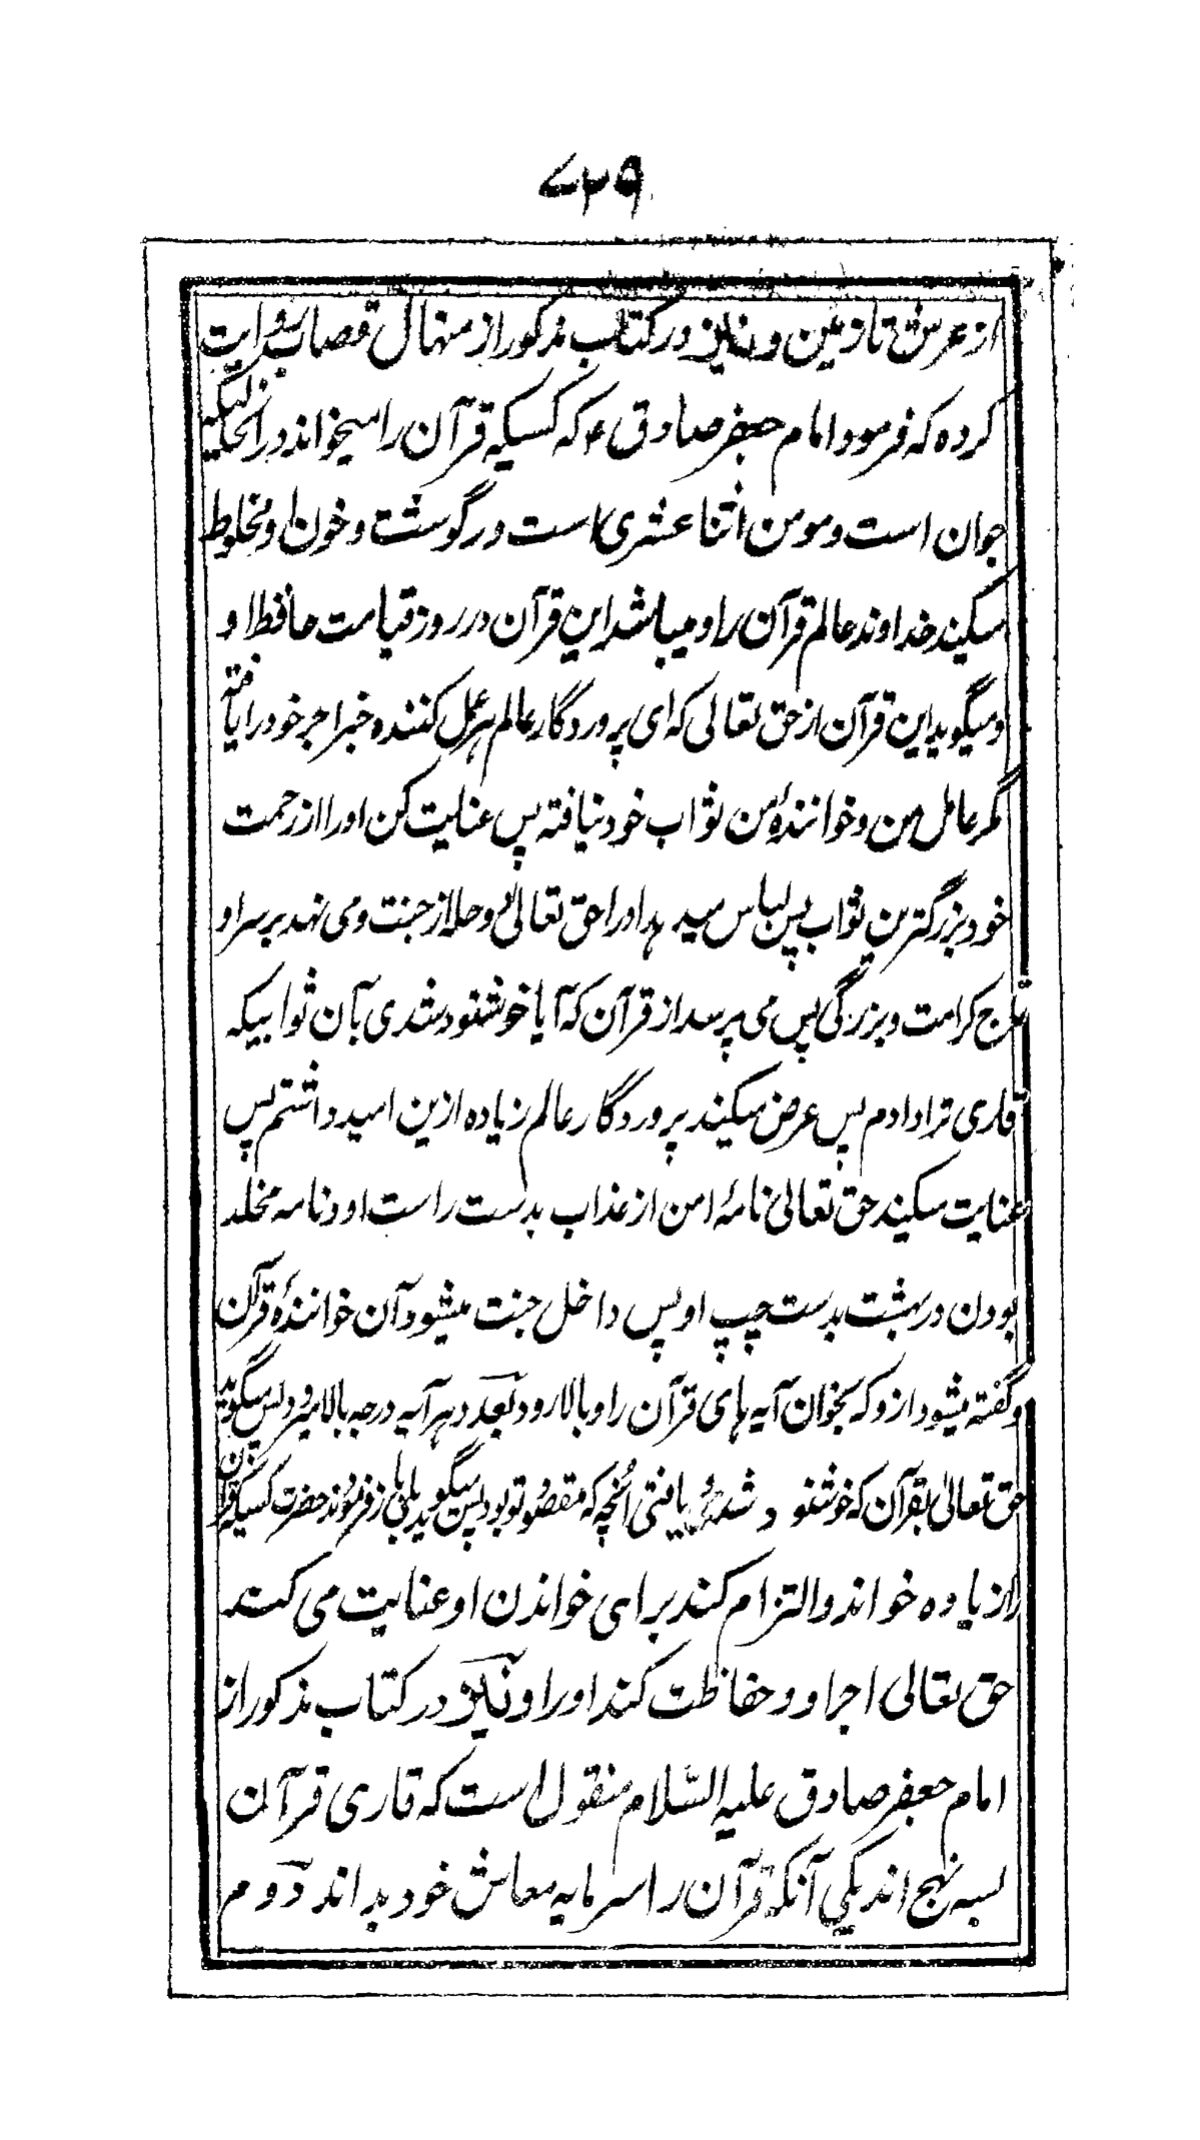 ۷۲۹
از عرش تا زمین و نیز در کتاب مذکور از منهال قصاب روایت
کرده که فرمود امام جعفر صادق ع که کسیکه قرآن را میخواند در انحالیکه
جوان است و مومن اثنا عشری است در گوشت و خون او مخلوط
میکند خداوند عالم قرآن را و میباشد این قرآن در روز قیامت حافظ او
و میگوید این قرآن از حق تعالی که ای پروردگار عالم هر عمل کننده خبر اجر خود را یافته
مگر عامل من و خوانندهٔ من ثواب خود نیافته پس عنایت کن او را از رحمت
خود بزرگترین ثواب پس لباس میدهد او را حق تعالی دو حله از جنت و می نهد بر سر او
تاج کرامت و بزرگی پس می پرسد از قرآن که آیا خوشنود شدی بآن ثوابیکه
قاری ترا دادم پس عرض میکند پروردگار عالم زیاده ازین امید داشتم پس
عنایت میکند حق تعالی نامهٔ امن از عذاب بدست راست او و نامه مخلد
بودن در بهشت بدست چپ او پس داخل جنت میشود آن خوانندهٔ قرآن
و گفته میشود ازو که بخوان آیه های قرآن را و بالا رو بعد هر آیه درجه بالا میرود پس میگوید
حق تعالی بقرآن که خوشنود شدی یافتی انچه که مقصود تو بود پس میگوید بلی باز فرمودند حضرت کسیکه قرآن
را زیاده خواند و التزام کند برای خواندن او عنایت می کند
حق تعالی اجر او و حفاظت کند او را و نیز در کتاب مذکور از
امام جعفر صادق علیه السّلام منقول است که قاری قرآن
بسه نهج اند یکی آنکه قرآن را سرمایه معاش خود بداند دوم